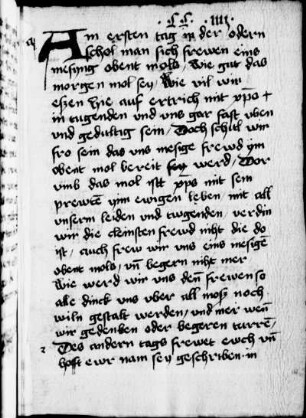 Am ersten tag in der odern
schol man sich frewen eins
messigen obent mols / Wie gut das
morgen mol sey / Wie vil wir
essen hie auf ertrich mit xp̄o +
in tugenden und uns gar fast uben
und gedultig sein / Doch schull wir
fro sein das uns mesige frewd ym
obent mol bereit werd / Wor
umb das mol ist xp̄s mit sein
ym ewigen leben mit all
unsern leiden und tugenden / verdin
wir die cleinsten frewd niht die do
ist / auch frew wir uns eins mesigē
obent mols / uñ begern niht mer
Wie werd wir uns deñ frewen so
alle dinck uns uber all moß noch
wiln gestalt werden / und mer weñ
wir gedencken oder begeren
Des andern tags frewet ewch uñ
hoft ewr nam sey geschriben in